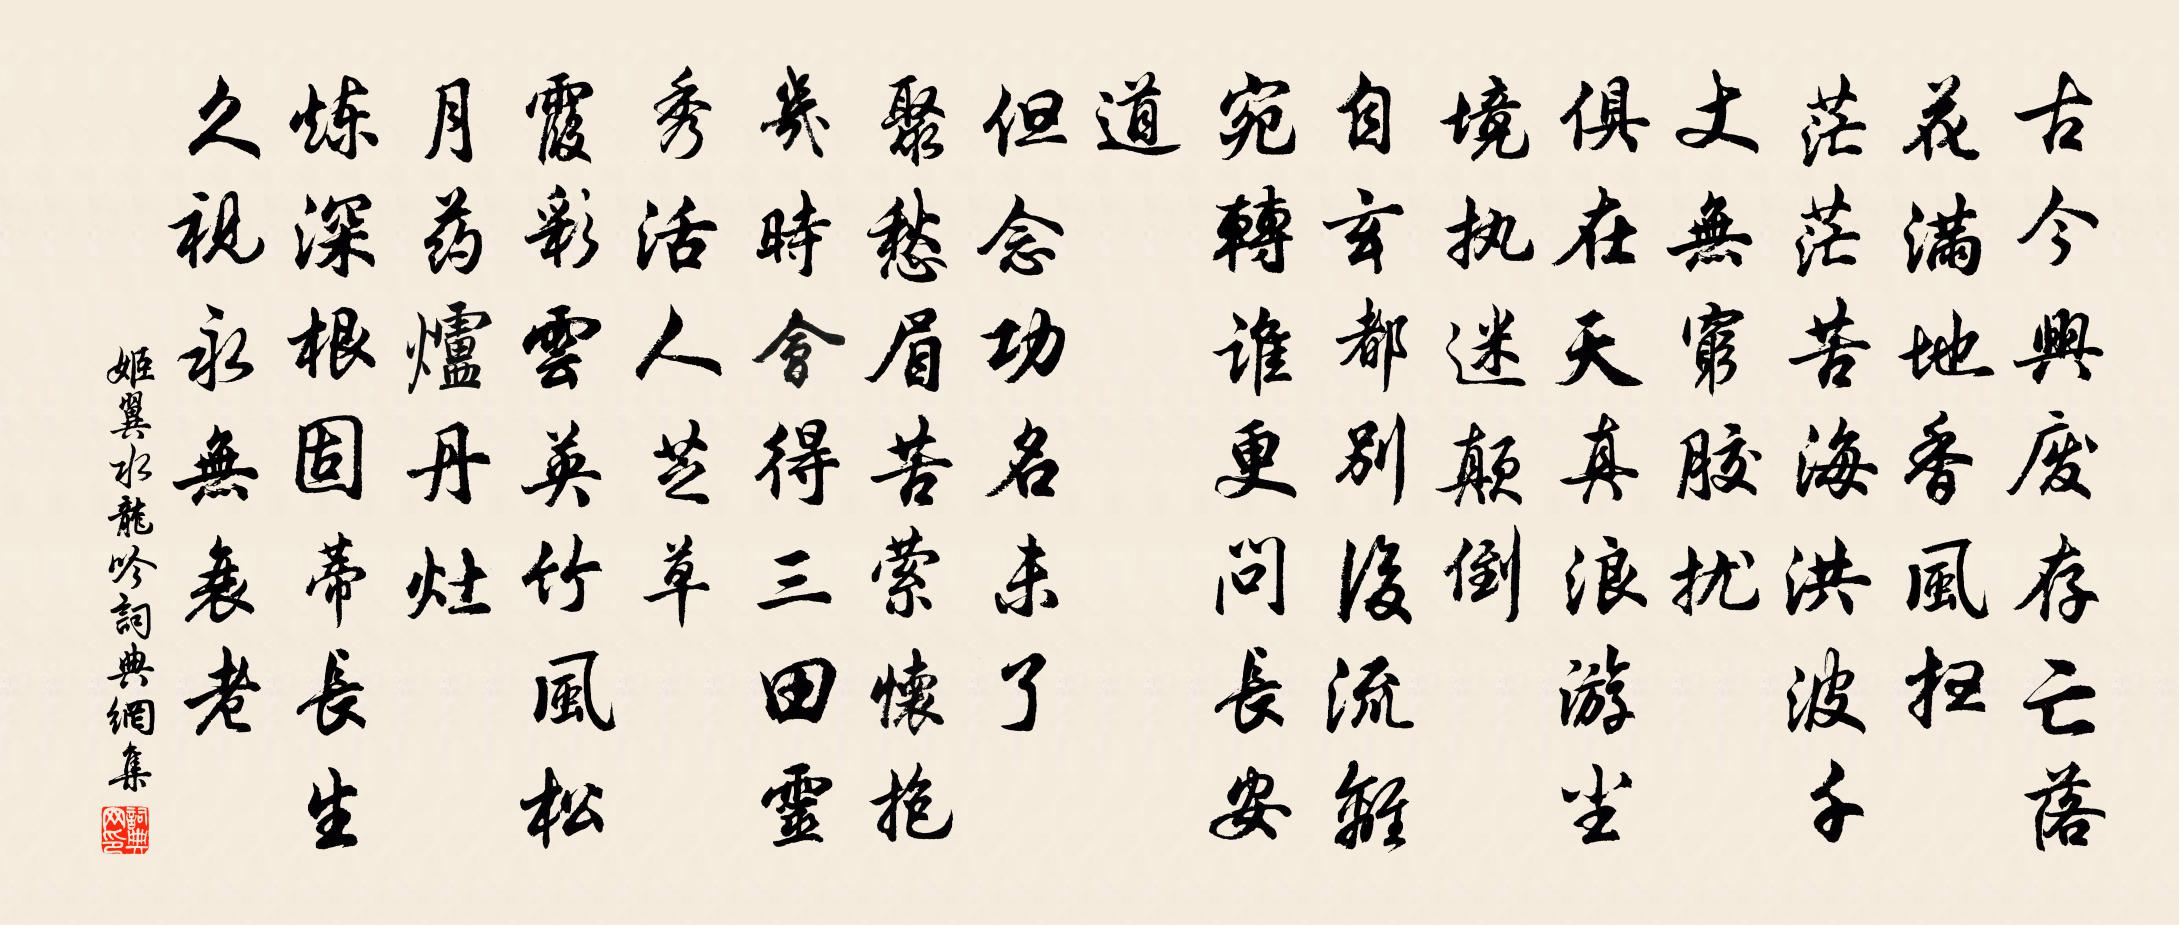 古今興廢存亡落
花滿地香風掃
茫茫苦海洪波千
丈無窮膠扰
俱在天真浪游尘
境执迷顛倒
自玄都別後流離
宛轉谁更問長安
道
但念功名未了
聚愁眉苦萦懷抱
幾時會得三田靈
秀活人芝草
霞彩雲英竹風松
月药爐丹灶
炼深根固蒂長生
久視永無衰老
姬翼水龍吟詞典網集
詞典网印